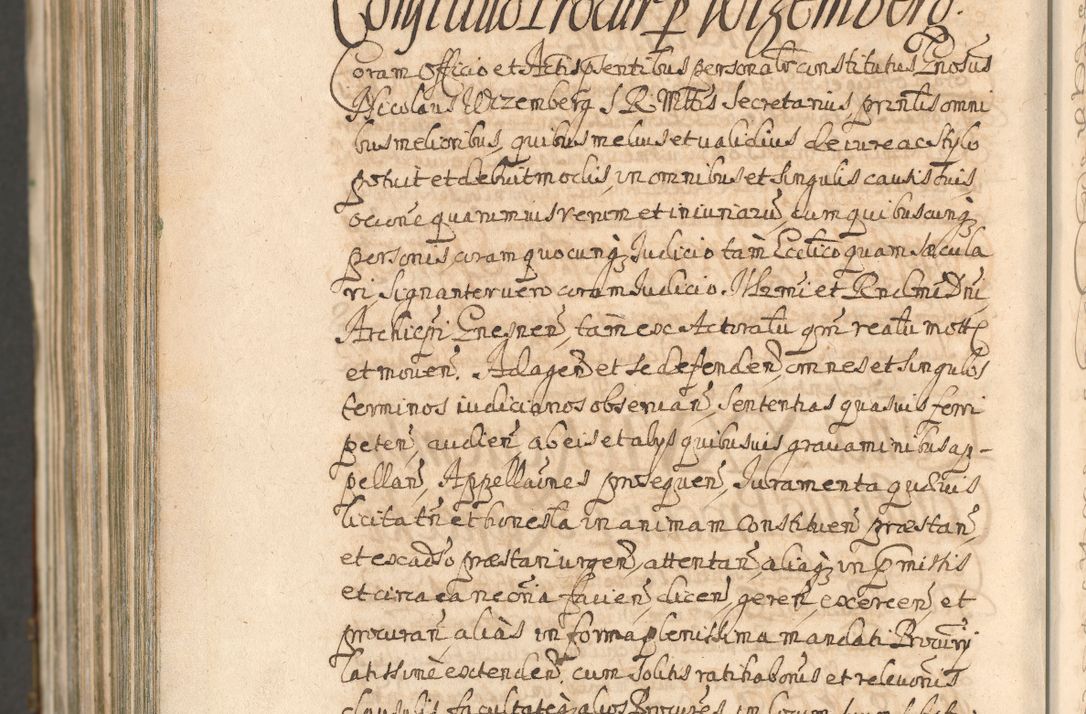 Constitutio Procur p Wizemberg.
Coram Officio et Actis pntibus personalr constitutus Gnosus
Nicolaus Wizemberg S. R. Mttis Secretarius, prinlis omni
bus melioribus, quibus melius et validius de iure ac stylo
potuit et debuit modis, in omnibus et singulis causis suis,
ocione quarumvis rerum et iniuriaru, cum quibuscunq
personis, coram quocunq Iudicio tam Ecclico quam sæcula
ri, signanter vero coram Iudicio. Illrmi et Rndmi Dni,
Archiepi Gnesnen, tam ex Actoratu qm reatu mott
et moven. Ad agen et se defenden, omnes et singulos
terminos iudiciarios observan, Sententias quasvis ferri
peten, audien, ab eis et alys quibusvis gravaminibus ap-
pellan, Appellaones prosequen, Iuramenta quævis
licita tn et honesta in animam Constituen præstan,
et ex adso præstari urgen, attentan, aliaq in pmissis
et circa ea necoria facien, dicen, geren, exercen, et
procuran alias in forma plenissima mandati Procurry
latissime extenden. cum solitis ratihabonis et relevonis
clausulis facultateq alios Procures in locum